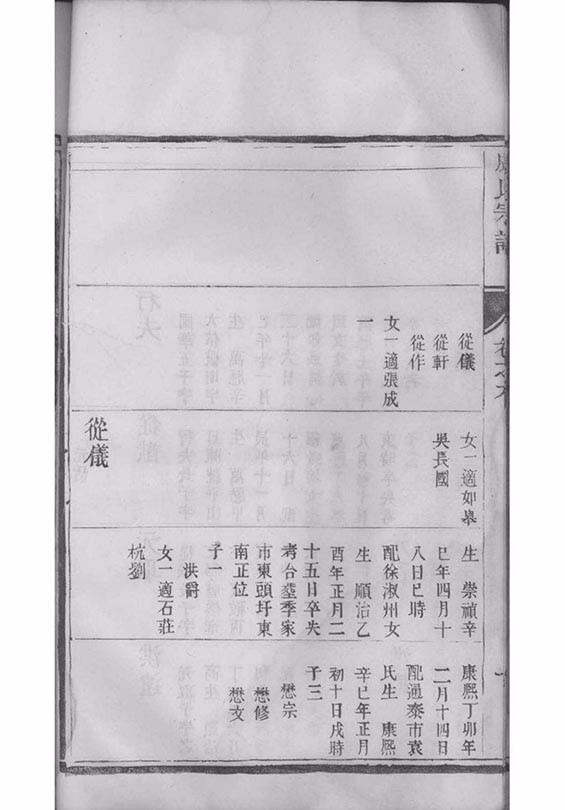 氏宗譜
從儀
從軒
從作
女一適張成
一
女一適如皋
吳長國
從儀
生 崇禎辛
巳年四月十
八日巳時
配徐淑州女
生 順治乙
酉年正月二
十五日卒失
考合塟季家
市東頭圩東
南正位
子一
洪爵
女一適石莊
杭劉
康熙丁卯年
二月十四日
配通泰市袁
氏生 康熙
辛巳年正月
初十日戌時
子三
懋宗
懋修
懋文